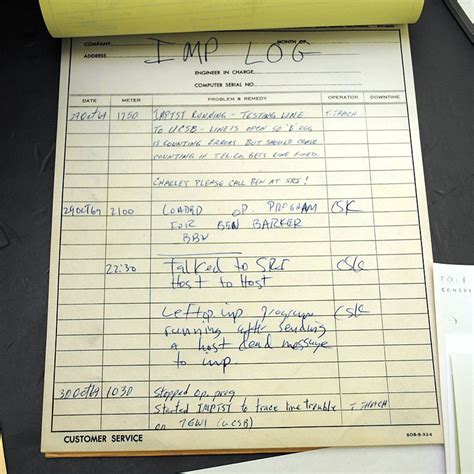 COMPANY
MONTH OF
IMP LOG
ADDRESS
ENGINEER IN CHARGE
COMPUTER SERIAL NO.
DATE METER PROBLEM & REMEDY OPERATOR DOWNTIME
29Oct69 1750 IMPTST RUNNING - TESTING LINE T.THACH
TO UCSB - LINE IS OPEN SO 'E' REG
IS COUNTING ERRORS BUT SHOULD CEASE
COUNTING IF TELCO. GETS LINE FIXED.
CHARLEY PLEASE CALL BEN AT SRI!
29Oct69 2100 LOADED OP. PROGRAM CSK
FOR BEN BARKER
BBN
22:30 Talked to SRI CSK
Host to Host
Left op. imp program CSK
running after sending
a host dead message
to imp.
30Oct69 1030 Stopped op. prog
Started IMPTST to trace line trouble T.THACH
on (UCSB)
CUSTOMER SERVICE